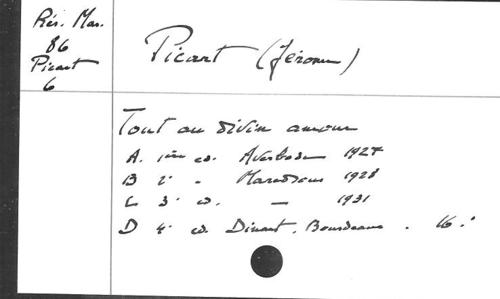 Rés. Mar.
86
Picart
6
Picart (Jérome)
Tout au divin amour
A. 1ère ed. Averbode 1927
B 2e " Maredsous 1928
C 3e ed. — 1931
D 4e ed. Dinant, Bourdeaux . 16.